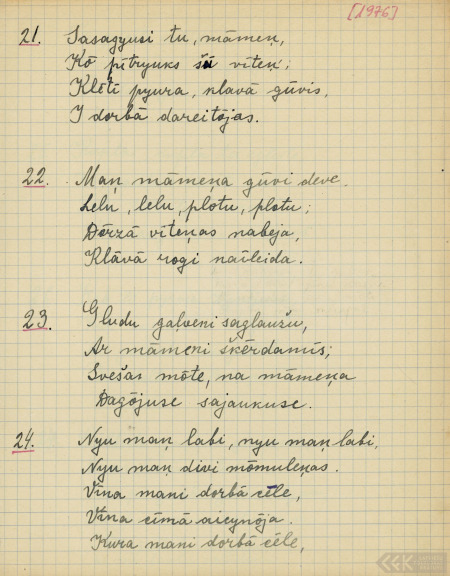 [1976]
21. Sasagyusi tu, māmeņ,
Kō pītryuks šū vīteņ;
Klētī pyura, klavā gūvis,
I dorbā dareitōjas.
22. Maņ māmeņa gūvi deve.
Lelu, lelu, plotu, plotu;
Dōrzā vīteņas nabeja,
Klāvā rogi naīleida.
23. Gludu galveni saglaužu,
Ar māmeni škērdamūs;
Svešas mōte, na māmeņa
Dagōjuse sajaukuse.
24. Nyu maņ labi, nyu maņ labi,
Nyu maņ divi mōmuleņas.
Vīna mani dorbā cēle,
Vīna cīmā aicynōja.
Kura mani dorbā cēle,